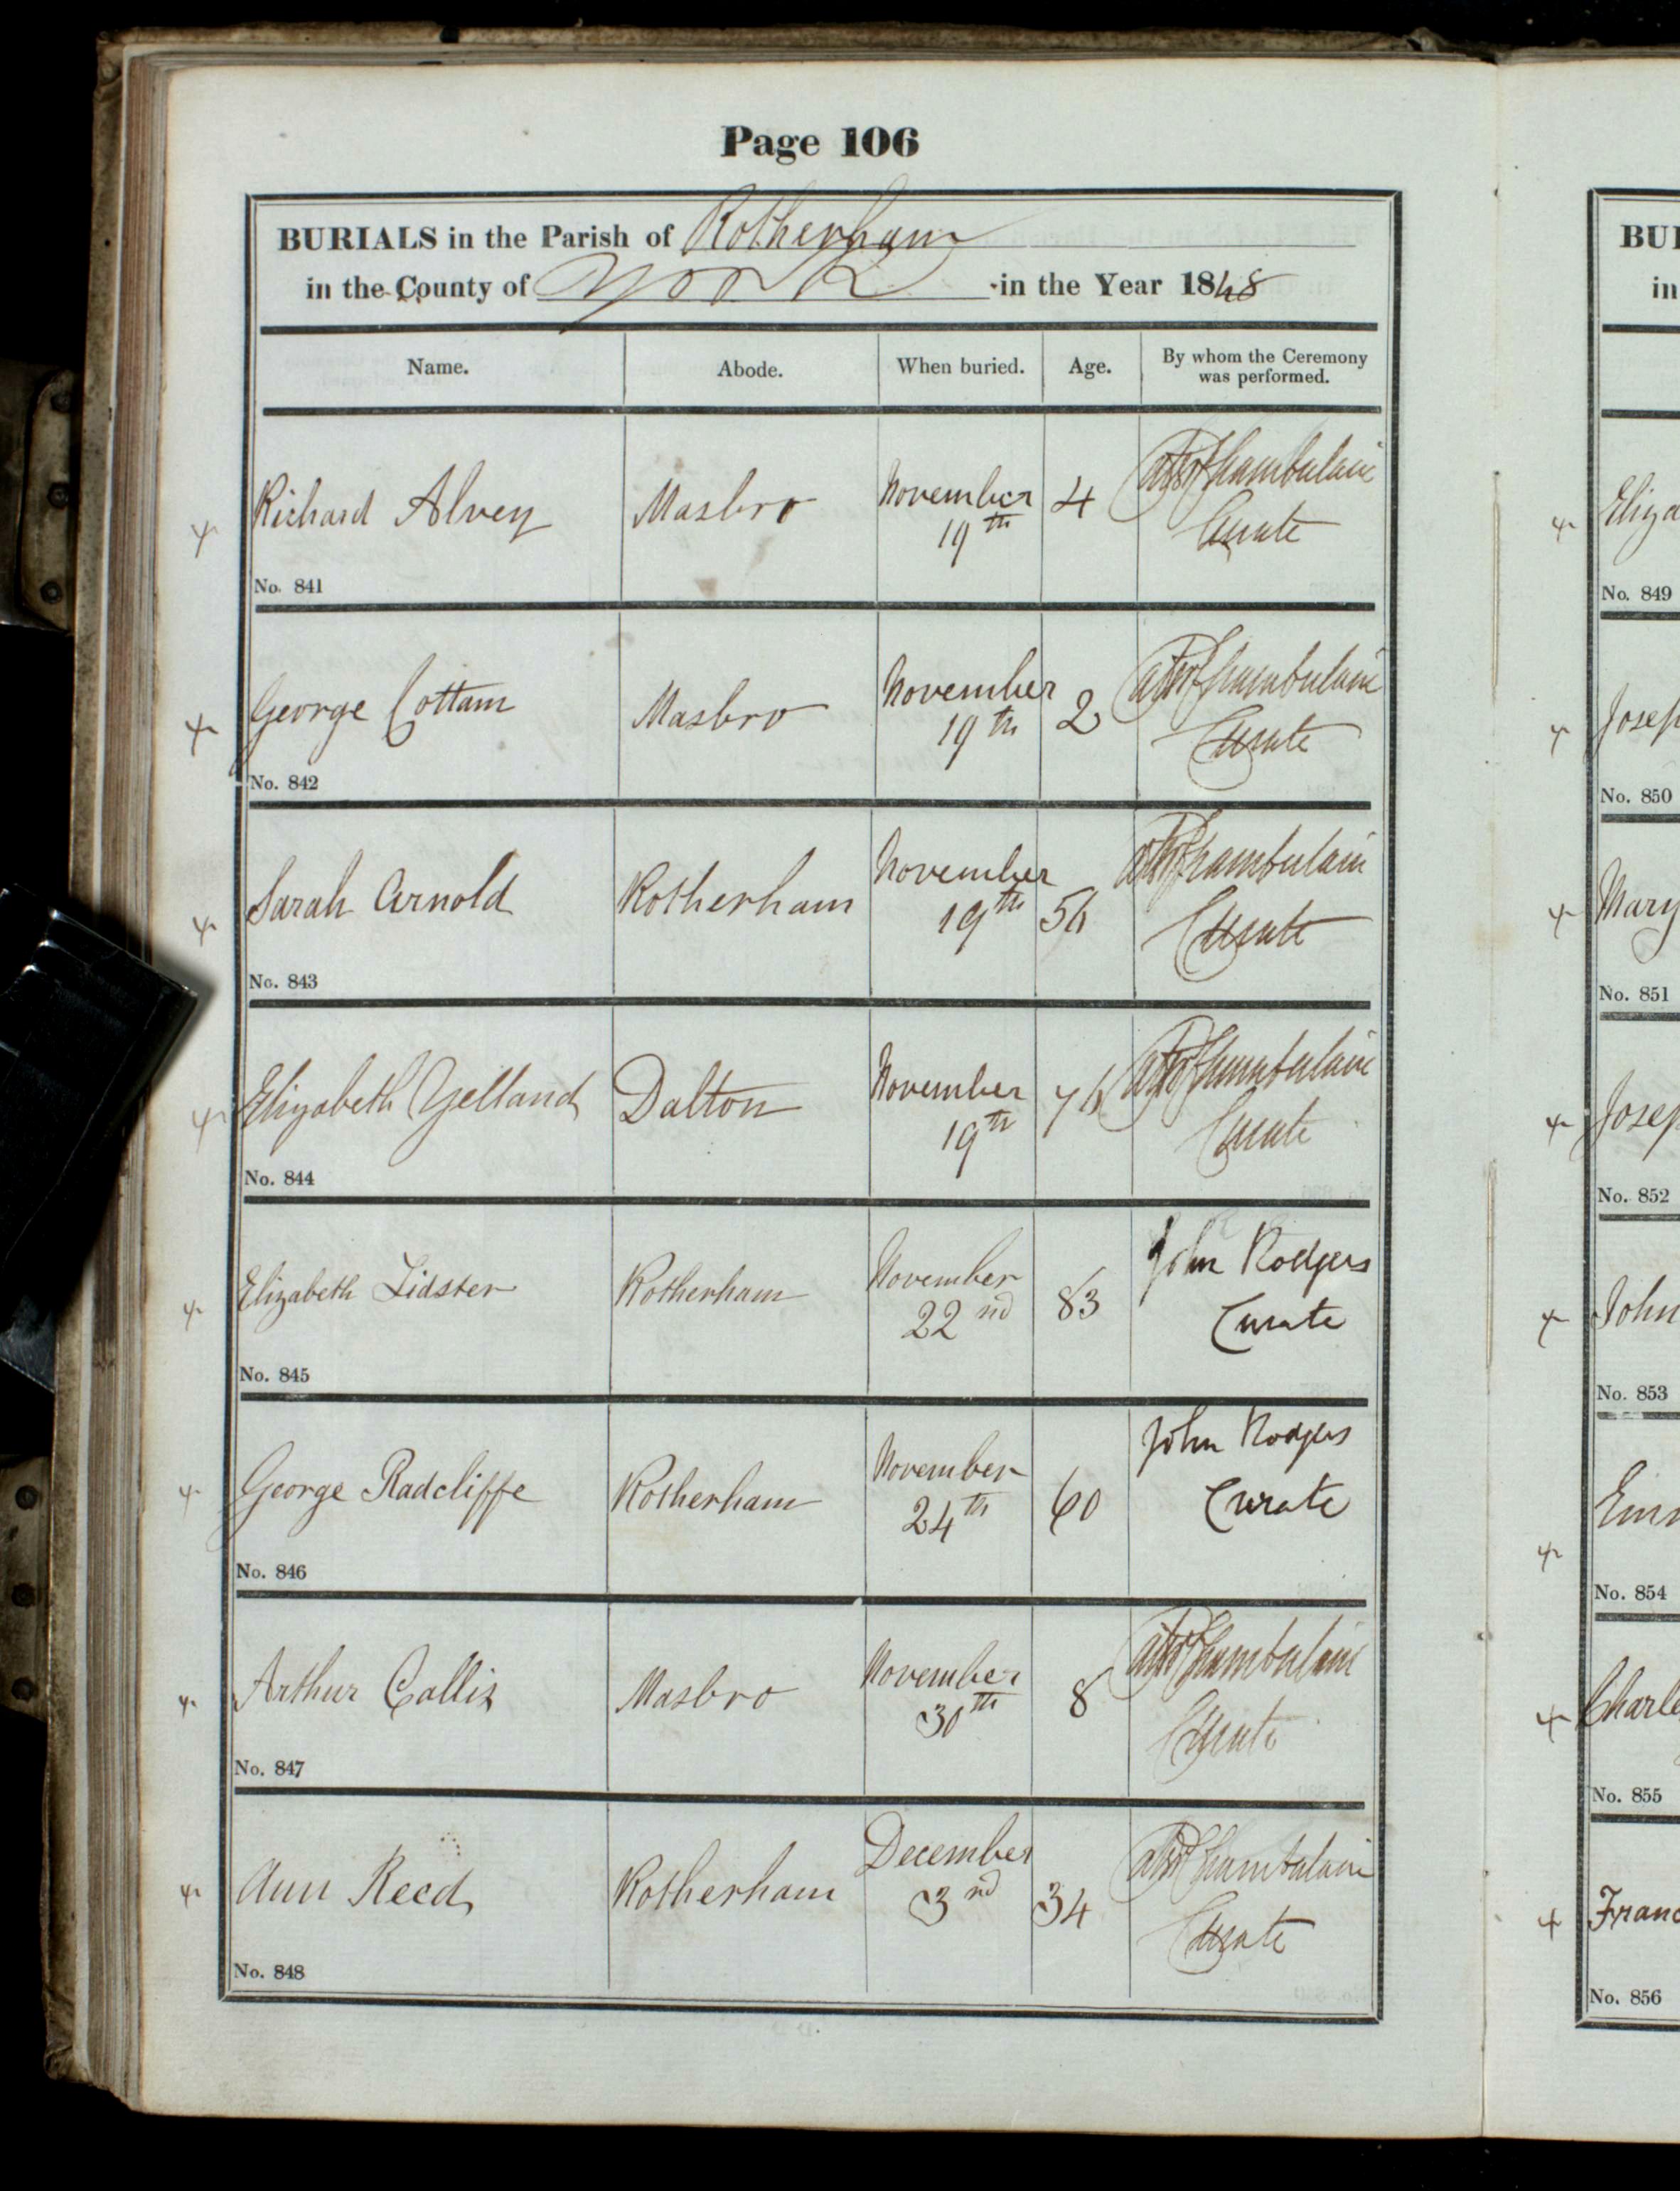 Page 106
BURIALS in the Parish of Rotherham
in the County of York in the Year 1848
Name. Abode. When buried. Age. By whom the Ceremony was performed.
Richard Alvey Masbro November 19th 4 Chamberlain Curate
No. 841
George Cottam Masbro November 19th 2 Chamberlain Curate
No. 842
Sarah Arnold Rotherham November 19th Chamberlain Curate
No. 843
Elizabeth Yelland Dalton November 19th Chamberlain Curate
No. 844
Elizabeth Lidster Rotherham November 22nd 83 John Rodgers Curate
No. 845
George Radcliffe Rotherham November 24th 60 John Rodgers Curate
No. 846
Arthur Collis Masbro November 30th 8 Chamberlain Curate
No. 847
Ann Reed Rotherham December 3rd 34 Chamberlain Curate
No. 848
BU
in
Eliza
No. 849
Josep
No. 850
Mary
No. 851
Josep
No. 852
John
No. 853
No. 854
Charle
No. 855
Franc
No. 856